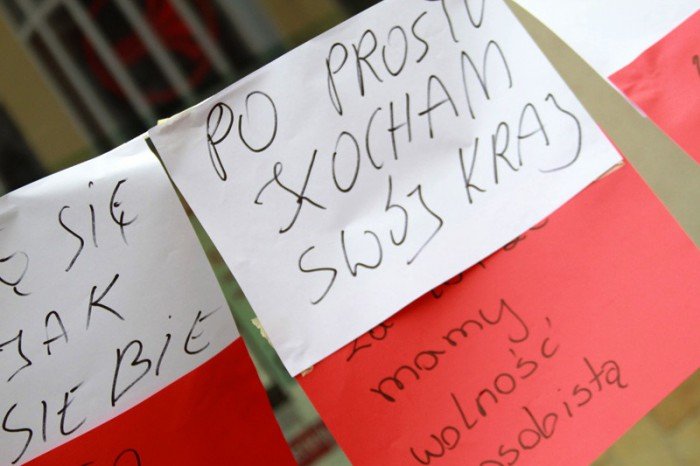 PO PROSTU
KOCHAM
SWÓJ KRAJ
SIĘ
JAK
SIEBIE
za
mamy
wolność
osobistą